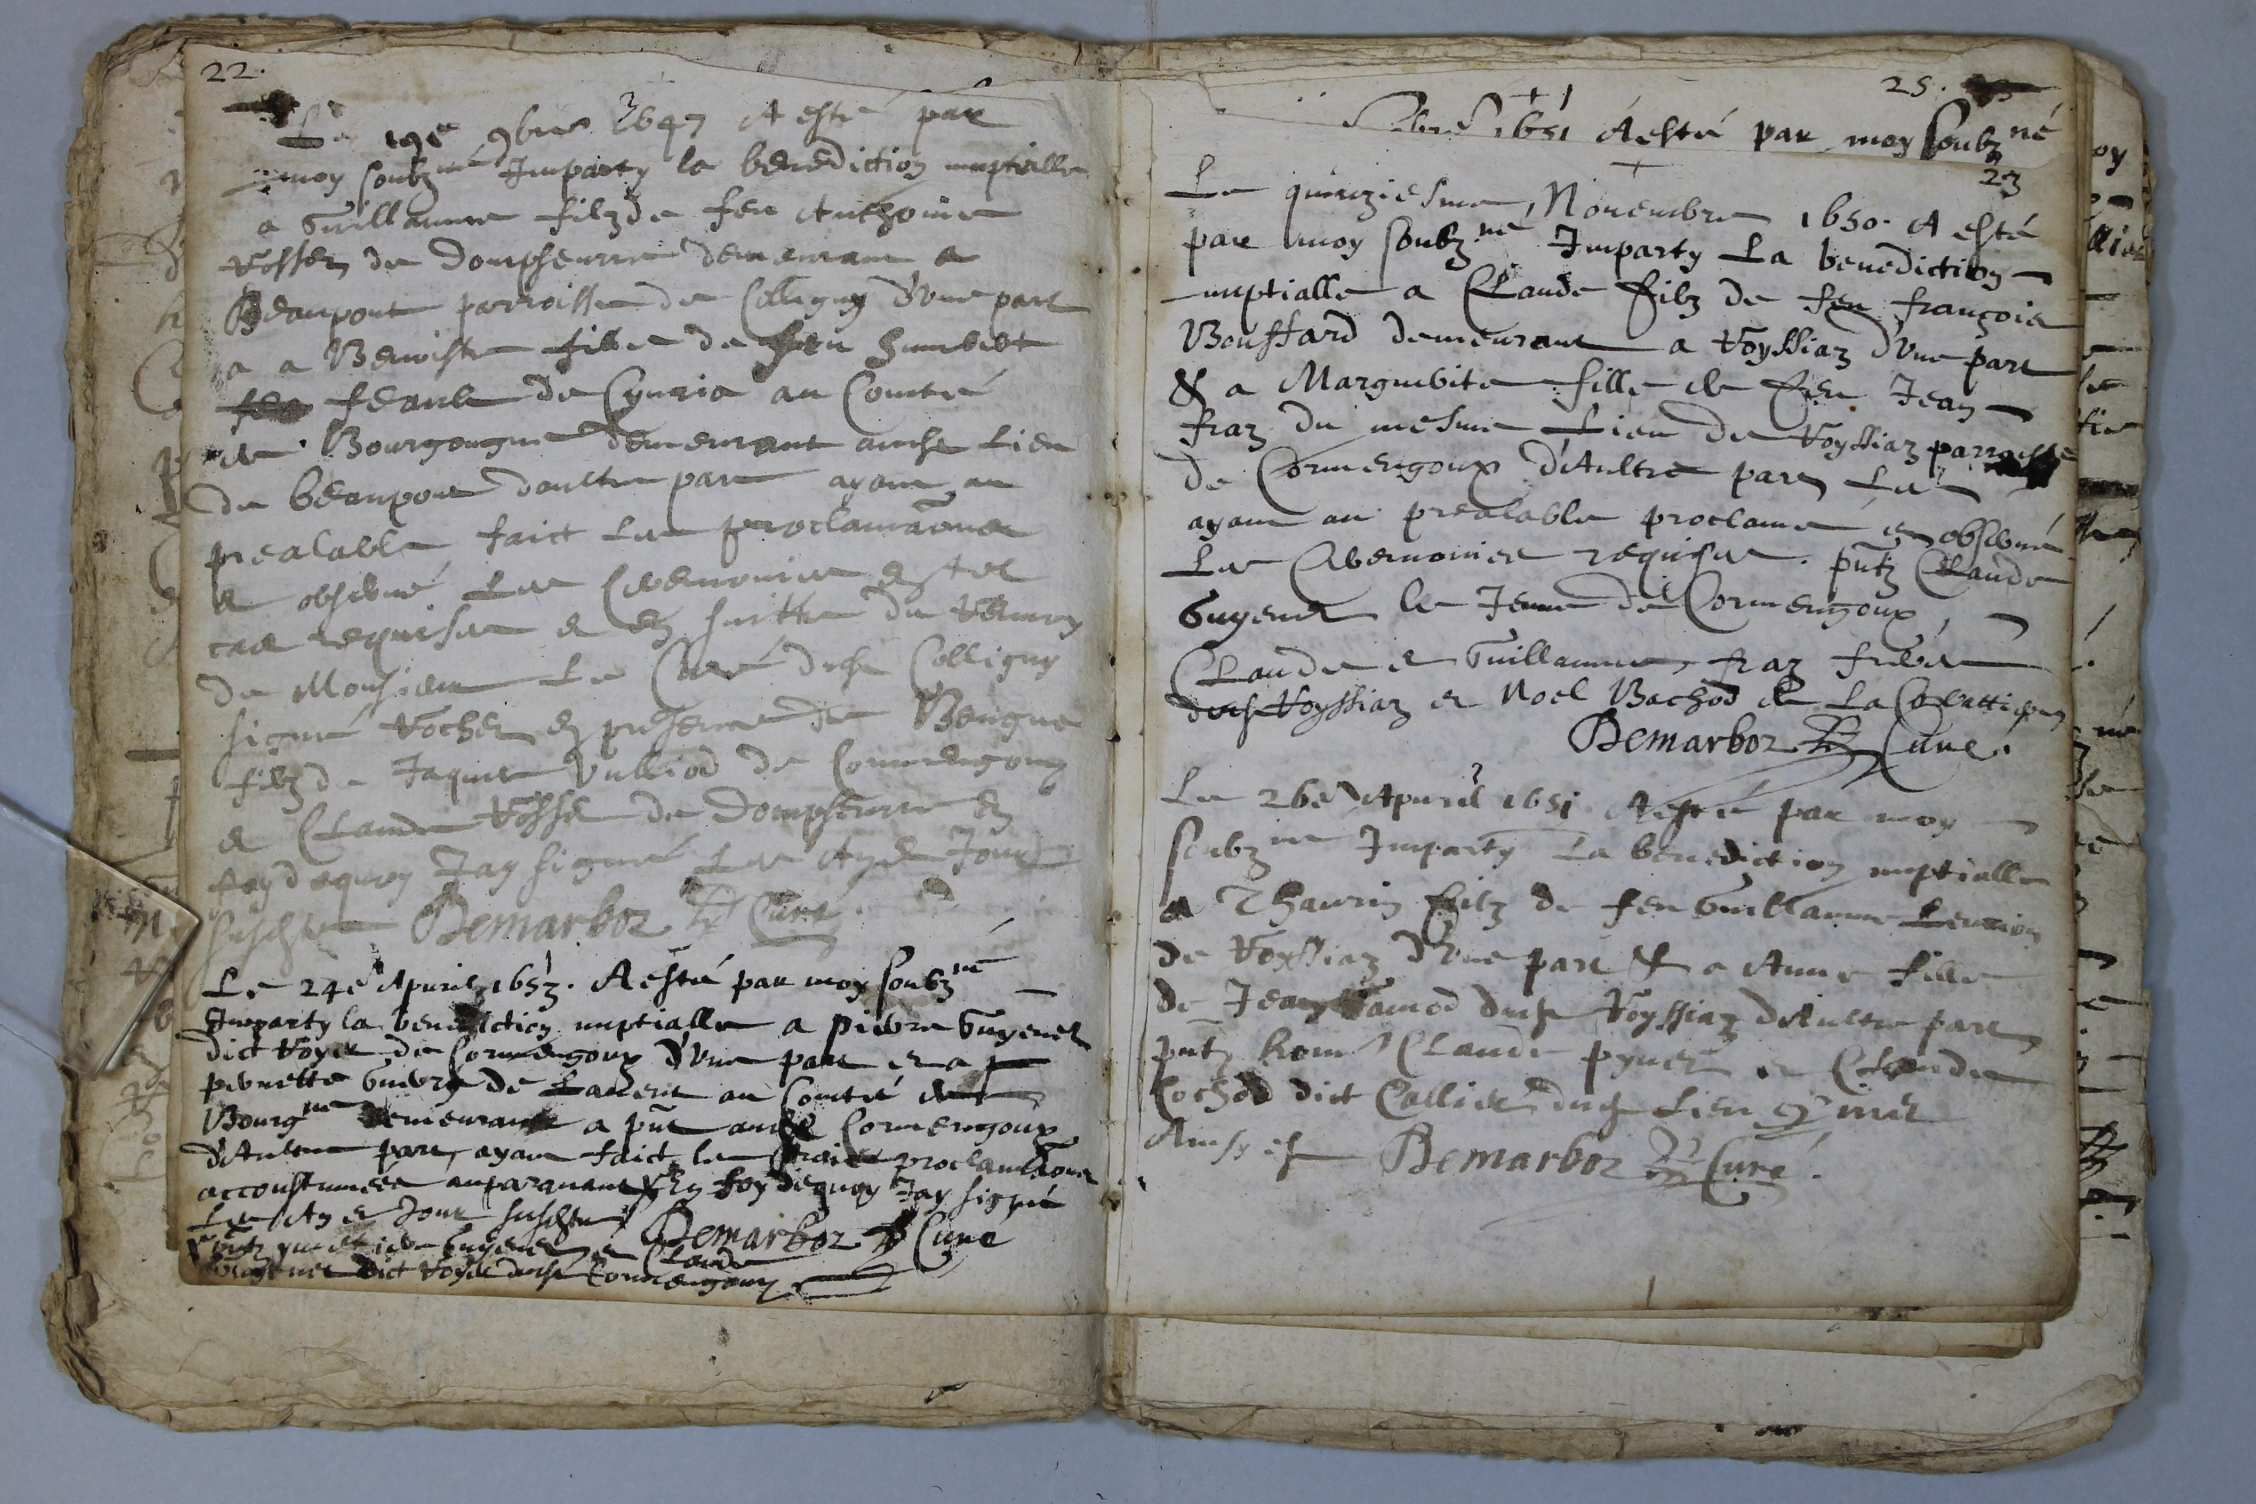 22.
Le 19e 9bre 1647 A esté par
moy soubz.né Imparty la benediction nuptialle
a Guillaume filz de feu Anthoine
de Dompseurre demeurant a
Beaupont parroisse de Colligny d'Vne part
& a Benoiste fille de feu humbert
de Cyuria au Comté
de Bourgougne demeurant audict Lieu
de beaupont daultre part ayant au
prealable faict Les proclamãons
& obserué Les Ceremonies en tel
cas requises & en suitte du Renuoy
de Monsieur Le Curé dudict Colligny
signé Vocher en presence de
filz de Jaques Vulliod de Cormengoux
& Claude de Dompseurre En
foy dequoy Jay signé Les An & Jour
susdict Demarboz Curé
Le 24e Apuril 1653. A esté par moy soubz.né
Imparty la benediction nuptialle a pierre Guyenet
dict Royet de Cormengoux d'Vne part et a
pernette de au Comté de
Bourg.ne demeurante a pñt audict Cormengoux
d'Aultre part, ayant faict les proclamãons
accoustumées auparauant En foy dequoy Jay signé
Les An & Jour susdict Demarboz Curé
pñtz Guyenet et Claude
dict Royet dudict Cormengoux
25.
1651 A esté par moy soubz.né
23
Le quinziesme Nouembre 1650. A esté
par moy soubz.né Imparty La benediction
nuptialle a Claude filz de feu françois
Bouffard demeurant a Voyssiaz d'Vne part
& a Marguerite fille de feu Jean
fraz du mesme Lieu de Voyssiaz parroisse
de Cormengoux d'Aultre part Les
ayant au prealable proclamé et obserué
Les Ceremonies requises. pñtz Claude
Guyenet le Jeune de Cormengoux,
Claude & Guillaume fraz freres
dudict Voyssiaz et Noel Bachod de La
Demarboz Curé.
Le 26e Apuril 1651 A esté par moy
soubz.né Imparty La benediction nuptialle
a Thaurin filz de feu Guillaume
de Voyssiaz d'Vne part & a Anne fille
de Jean dudict Voyssiaz d'Aultre part
pñtz hon. Claude pyuet et Claude
Cochod dict Callier dudict Lieu
Ainsy est Demarboz Curé.